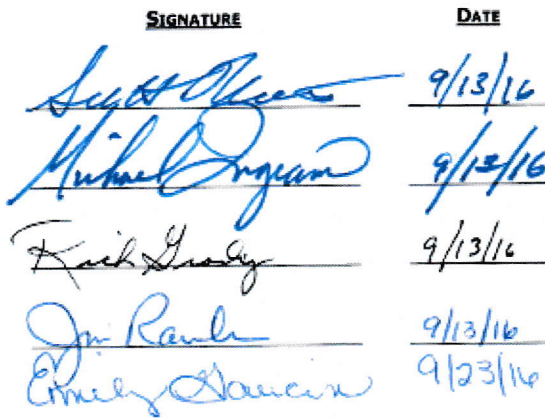 SIGNATURE DATE
Scott 9/13/16
Michael Ingram 9/13/16
Rich Grady 9/13/16
Jim 9/13/16
Emily 9/23/16